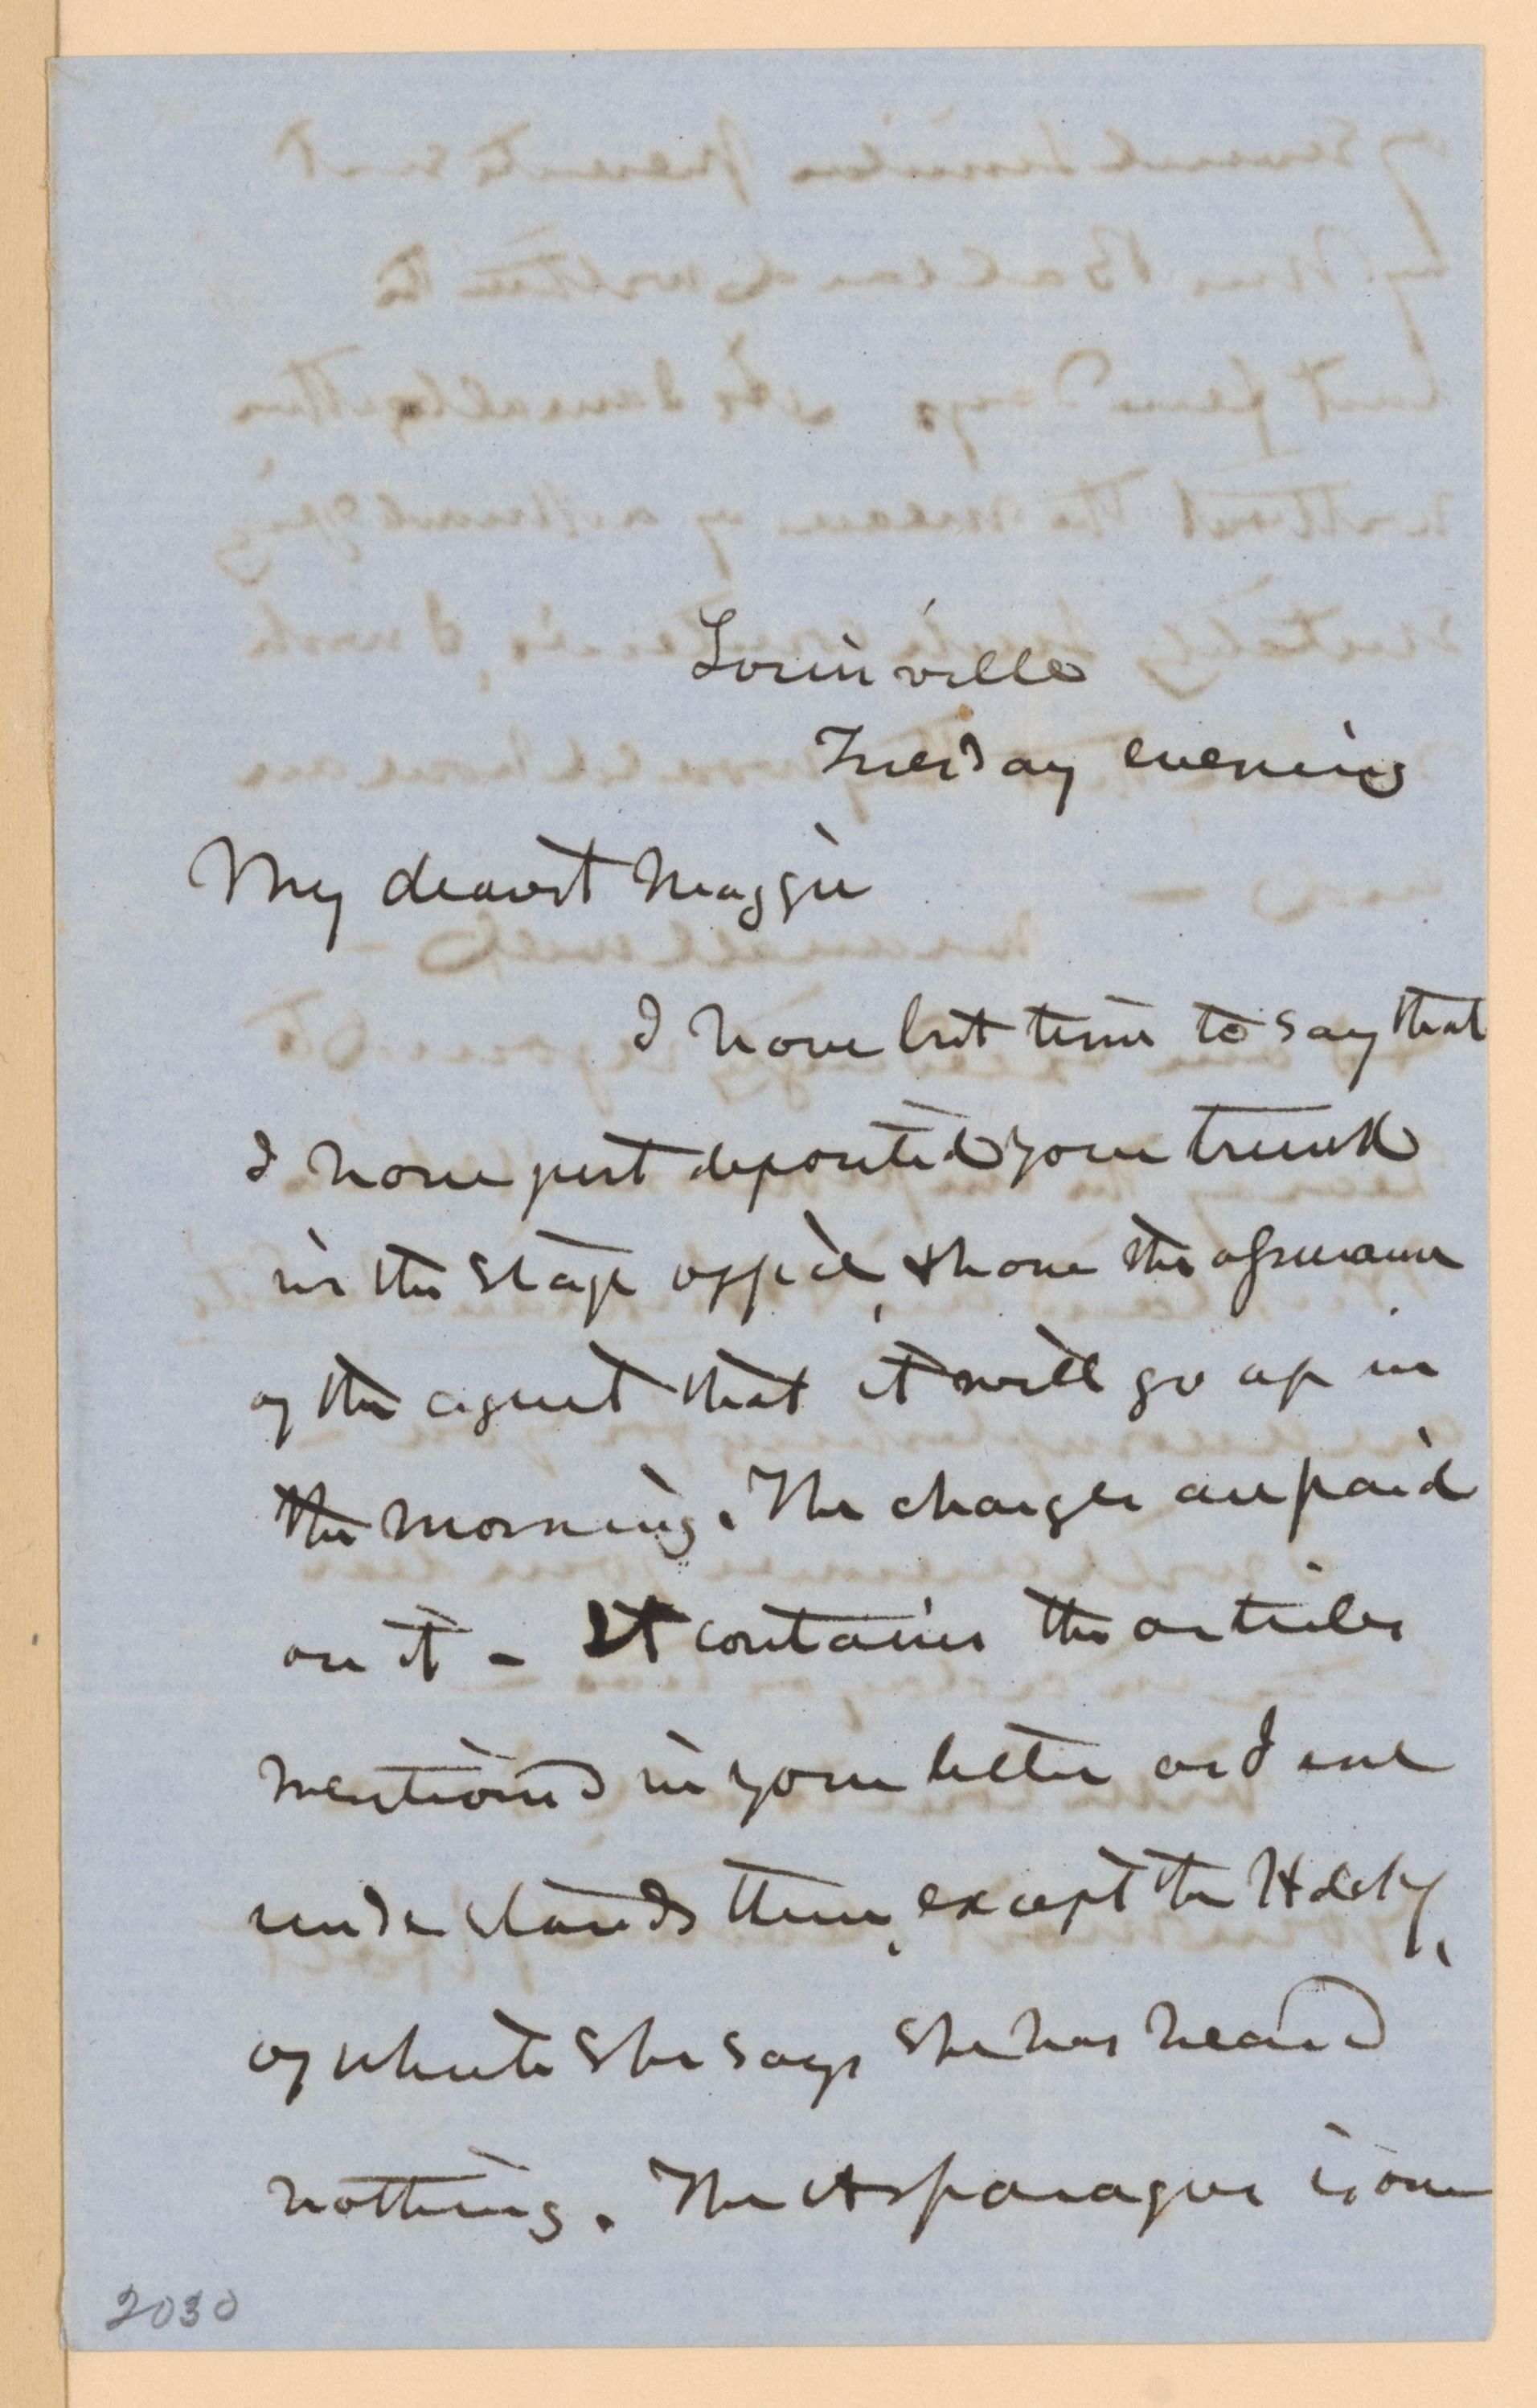 Louisville
Tuesday evening
My dearest Maggie
I have but time to say that
I have just deposited your trunk
in the stage office, & have the assurance
of the agent that it will go up in
the morning. The charges are paid
on it - It contains the articles
mentioned in your letter as I
understands them, except the
of which she says she has heard
nothing. The Asparagus is one
2030